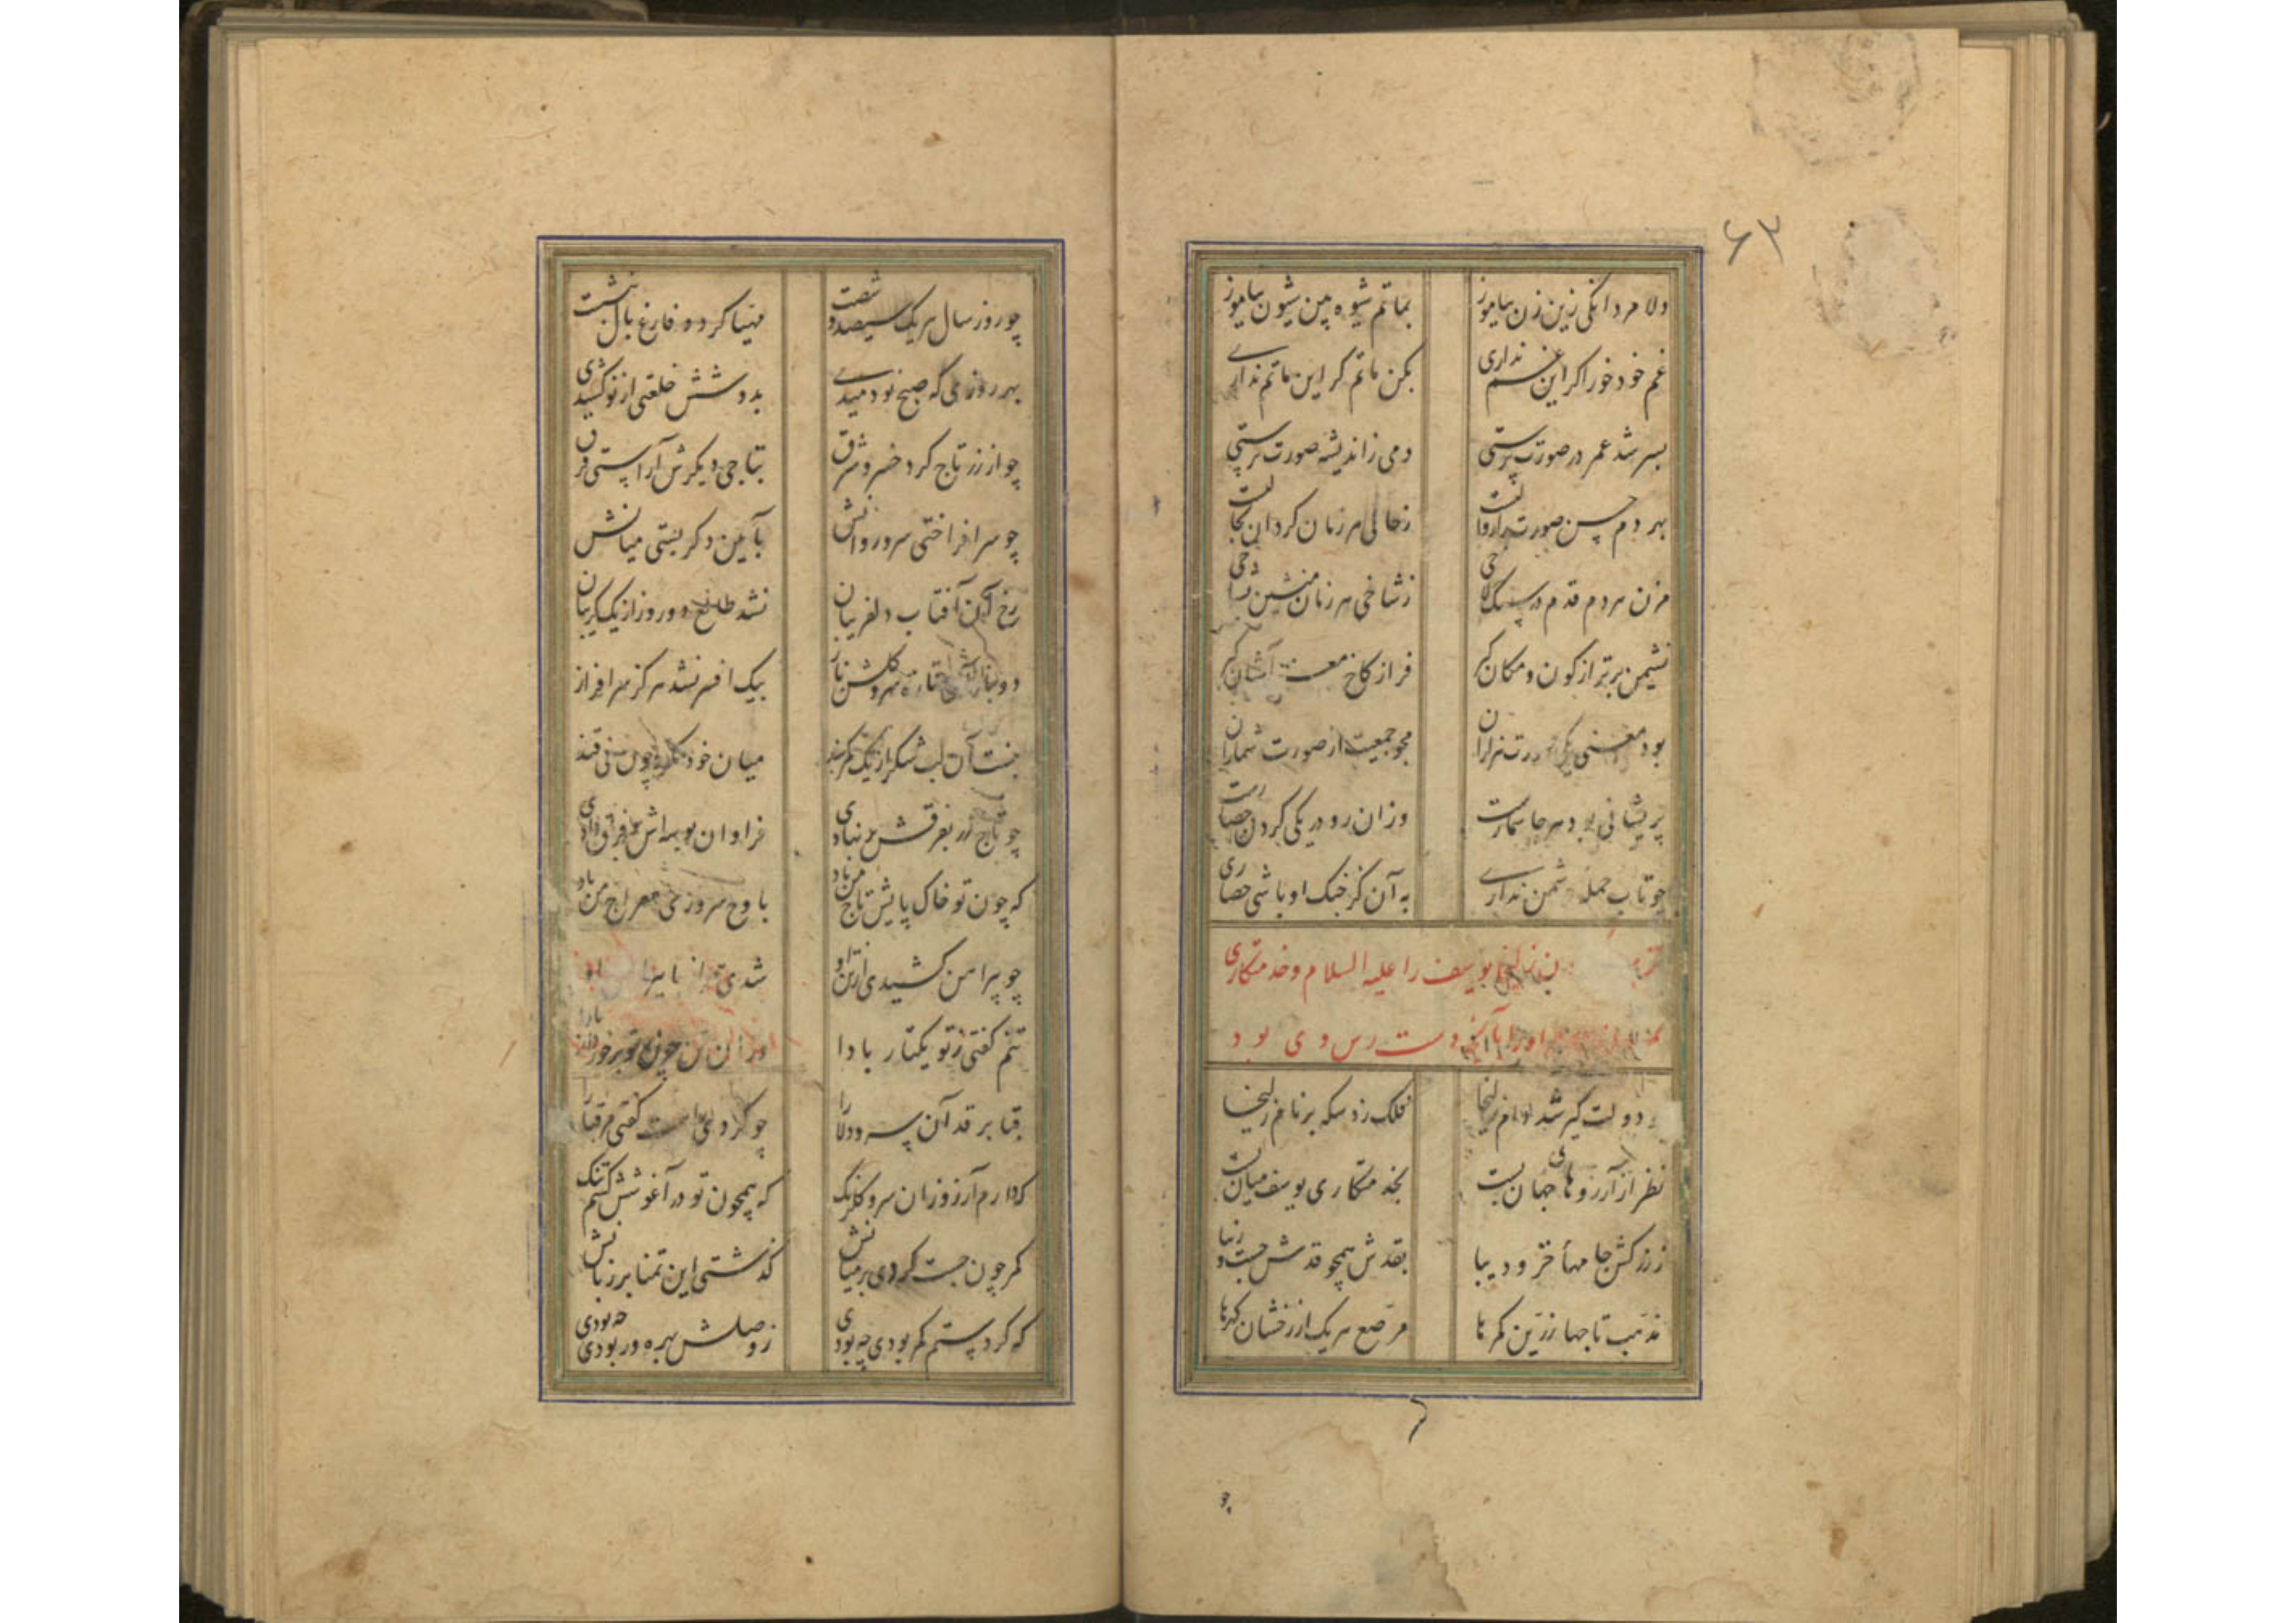 ۶۳
دلا مردانگی زین زن بیاموز بماتم شیوه شیون بیاموز
غم خود خور اکر این غم نداری بکن ماتم کر این ماتم نداری
بسر شد عمر در صورت پرستی دمی ز اندیشه صورت نرستی
بهر دم حسن صورت را زوالست ز حالی هر زمان کردان بحالست
مزن هر دم قدم در سنکلاخی ز شاخی هر زمان منشین بشاخی
نشیمن برتر از کون و مکان کیر فراز کاخ معنی آشیان کیر
بود معنی یکی صورت هزاران مجو جمعیت از صورت شماران
پریشانی بود هر جا شمارست وزان رو در یکی کردن حصارست
چو تاب حمله دشمن نداری به آن کز جنک او باشی حصاری
زلیخا یوسف را علیه السلام و خدمتکاری
او را بآنچه دست رس وی بود
دولت کیر شد دام زلیخا فلک زد سکه بر نام زلیخا
نظر از آرزوهای جهان بست بخدمتکاری یوسف میان بست
ز زرکش جامها خز و دیبا بقدش همچو قدش چست و زیبا
مذهب تاجها زرین کمرها مرصع هر یک از رخشان کهرها
چو
چو روز سال هر یک سیصد و شصت مهیا کرده و فارغ بال بنشست
بهر روزی که صبح نو دمیدی بدوشش خلعتی از نو کشیدی
چو از زر تاج کرد خسرو شرق بتاجی دیکرش آراستی فرق
چو سر افراختی سرو روانش بآیین دکر بستی میانش
رخ آن آفتاب دلفریبان نشد طالع دو روز از یک کریبان
دو بار آن تازه سرو کلشن ناز بیک افسر نشد هرکز سرافراز
نبست آن لب شکر از یک کمربند میان خود مکرر چون نی قند
چو تاج زر بفرقش بر نهادی فراوان بوسه اش بر فرق دادی
که چون تو خاک پایش تاج من باد باوج سروری معراج من باد
چو پیراهن کشیدی از تن او شدی
تنم کفتی ز تو یکتار بادا وزان تن چون تو برخوردار بادا
قبا بر قد آن سرو دلارا چو کردی راست کفتی مر قبا را
که دارم آرزو زان سرو کلرنک که همچون تو در آغوشش کشم تنک
کمر چون چست کردی بر میانش کذشتی این تمنا بر زبانش
که کر دستم کمر بودی چه بودی ز وصلش بهره ور بودی چه بودی